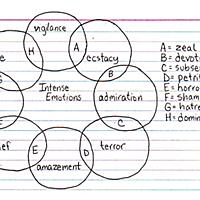 vigilance
H A
e ecstacy
B
G
Intense
Emotions
admiration
C
F
ief E D terror
amazement
A = zeal
B = devot
C = subse
D = petri
E = horro
F = sham
G = hatre
H = domin